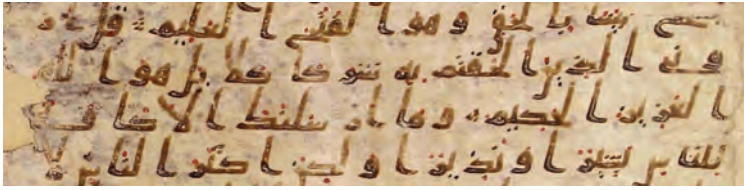 يفتح بيننا بالحق وهو الفتح العليم قل ار
وني الذين الحقتم به شركا كلا بل هو الله
العزيز الحكيم وما ارسلنك الا كافة
للناس بشيرا ونذيرا ولكن اكثر الناس